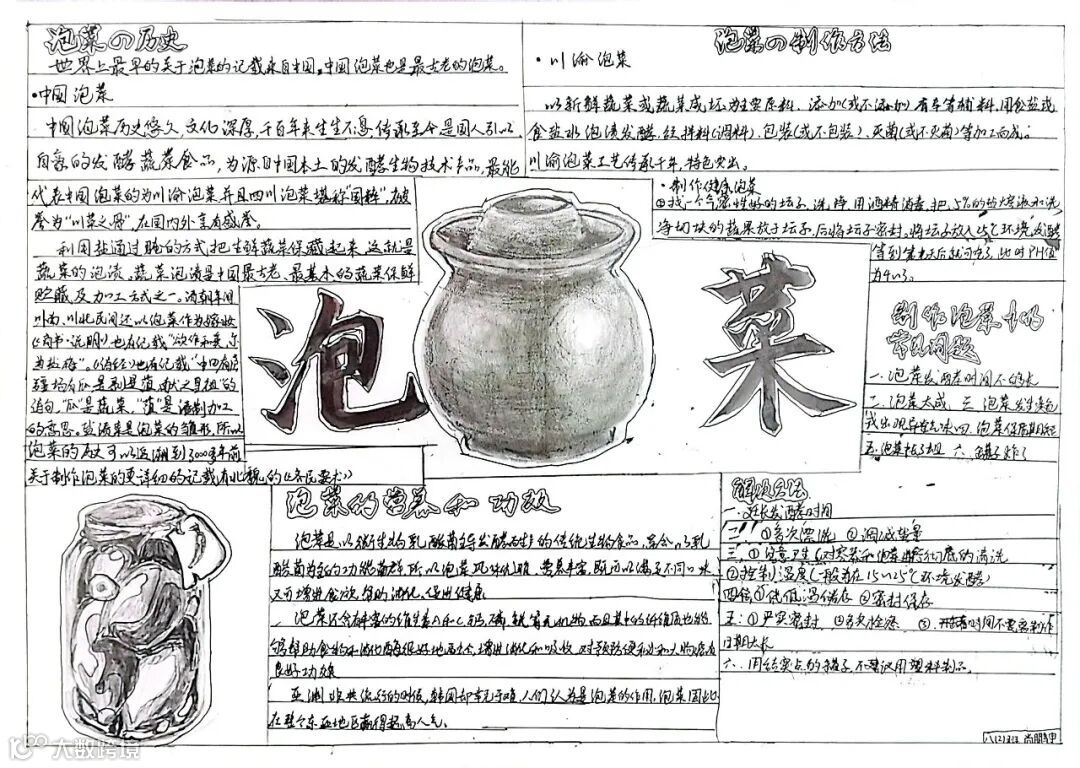 泡菜の历史
世界上最早的关于泡菜的记载来自中国,中国泡菜也是最古老的泡菜。
·中国泡菜
中国泡菜历史悠久,文化深厚,千百年来生生不息,传承至今是国人引以
自豪的发酵蔬菜食品,为源自中国本土的发酵生物技术产品,最能
代表中国泡菜的为川渝泡菜并且四川泡菜堪称"国粹",被
誉为"川菜之骨",在国内外享有盛誉。
利用盐通过腌的方式把生鲜蔬菜保藏起来,这就是
蔬菜的泡渍,蔬菜泡渍是中国最古老、最基本的蔬菜保鲜
贮藏及加工方式之一。清朝年间
川南、川北民间还以泡菜作为嫁妆
《尚书·说明》也有记载"欲作和羹,尔
惟盐梅"。《诗经》也有记载"中田有庐
疆场有瓜是剥是菹,献之皇祖"的
诗句,"瓜"是蔬菜,"菹"是渍制加工
的意思。
泡菜的历史可以追溯到3000多年前
关于制作泡菜的要详细的记载有北魏的《齐民要术》
泡菜
泡菜の制作方法
·川渝泡菜
以新鲜蔬菜或蔬菜咸坯为主要原料,添加(或不添加)有辛等辅料,用食盐或
食盐水泡渍发酵,经拌料(调料)、包装(或不包装)、灭菌(或不灭菌)等加工而成。
川渝泡菜工艺传承千年,特色突出。
·制作健康泡菜
①找一个密性好的坛子,洗净,用酒精消毒,把5%的盐溶液和洗
净切块的蔬果放于坛子,后将坛子密封。将坛子放入25℃环境,发酵
制作泡菜中的
常见问题
一、泡菜发酵时间不够长
二、泡菜太咸 三、泡菜发生变色
或出现异味 四、泡菜保质期短
五、泡菜 六、罐子炸了
解决方法
一、延长发酵时间
二、①多次漂洗 ②调减盐量
三、①注意卫生(对容器和泡菜进行彻底的清洗
②控制温度(一般为在15℃~25℃环境发酵)
四、①低温储存 ②密封保存
五:①严实密封 ②多次检查 ③
日期太长
六、用结实点的罐子,不建议用塑料制品。
泡菜的营养和功效
泡菜是以微生物乳酸菌主导发酵而生产的传统生物食品,富含以乳
酸菌为主的功能菌群,所以泡菜风味优雅、营养丰富,既可以满足不同口味
又可增进食欲,帮助消化,促进健康
泡菜还含丰富的维生素A和C,钙、磷、铁等无机物,而且其中的纤维质也能
够帮助食物和消化酶很好地结合,增进消化和吸收,对预防便秘和大肠癌有
良好功效
亚洲非典流行的时候,韩国却幸免于难,人们认为是泡菜的作用,泡菜因此
在整个东亚地区赢得超高人气。
大数跨境